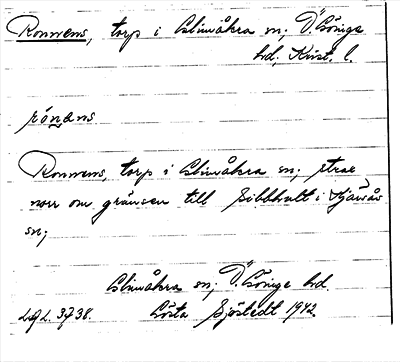 Ronnens, torp i Glimåkra sn; Ö. Göinge
hd, Krist. l.
rónans
Ronnens, torp i Glimåkra sn; strax
norr om gränsen till Sibbhult i Hjärsås
sn;
Glimåkra sn; Ö. Göinge hd.
Gösta Sjöstedt 1942.